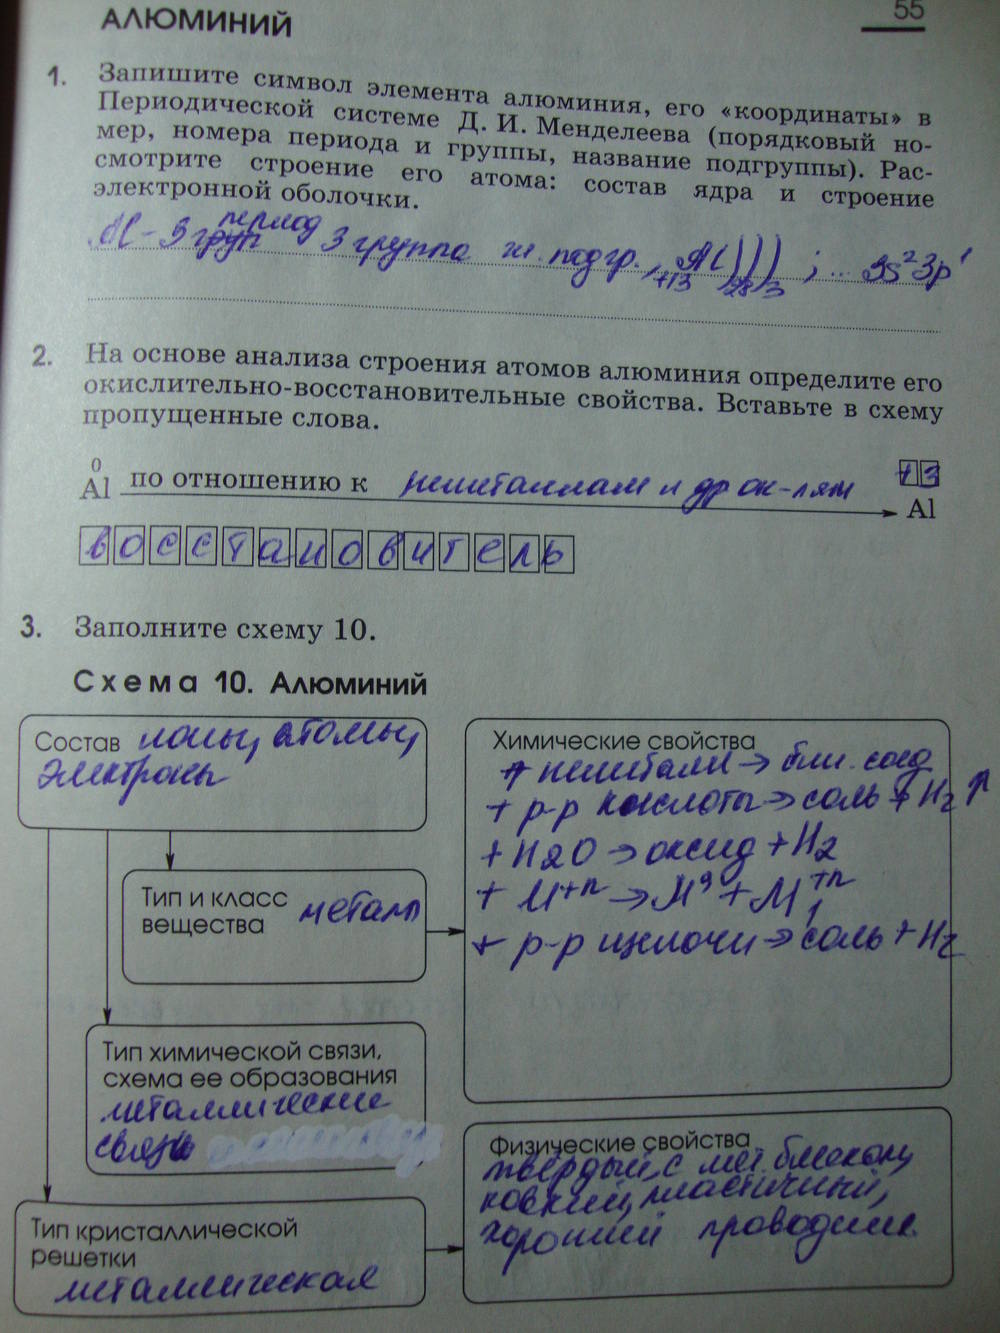 АЛЮМИНИЙ
55
1. Запишите символ элемента алюминия, его «координаты» в
Периодической системе Д. И. Менделеева (порядковый но-
мер, номера периода и группы, название подгруппы). Рас-
смотрите строение его атома: состав ядра и строение
электронной оболочки.
период
Al - 3 груп 3 группа подгр., Al ))) ; ... 3s² 3p¹
+13 2 8 3
2. На основе анализа строения атомов алюминия определите его
окислительно-восстановительные свойства. Вставьте в схему
пропущенные слова.
0 +3
Al по отношению к неметаллам и др ок-лям Al
восстановитель
3. Заполните схему 10.
Схема 10. Алюминий
Состав ионы, атомы,
электроны
Тип и класс
вещества металл
Тип химической связи,
схема ее образования
металлические
связи
Тип кристаллической
решетки
металлическая
Химические свойства
+ неметалл → бин. соед
+ р-р кислоты → соль + H2 ↑
+ H2O → оксид + H2
+ M⁺ⁿ → M⁰ + M₁⁺ⁿ
+ р-р щелочи → соль + H2
Физические свойства
твердый, с мет. блеском,
ковкий, пластичный,
хороший проводник